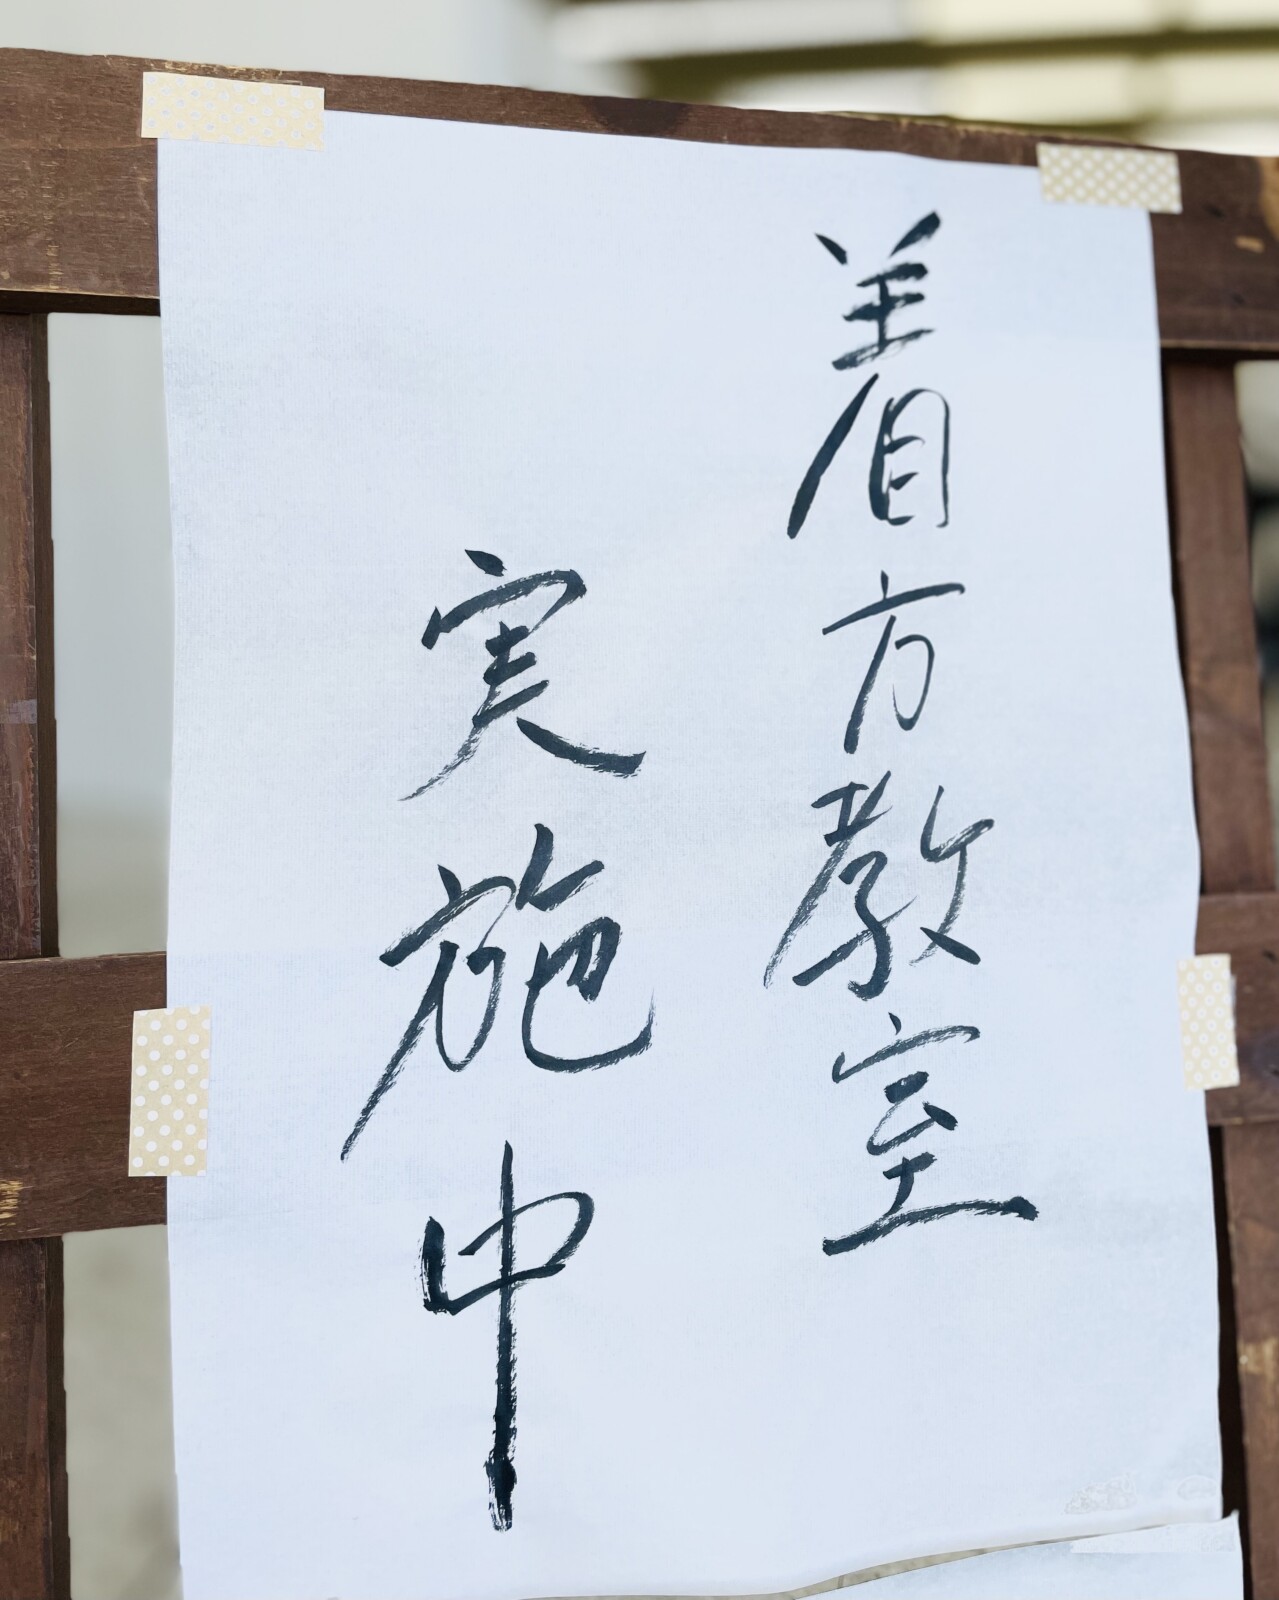 着方教室
実施中